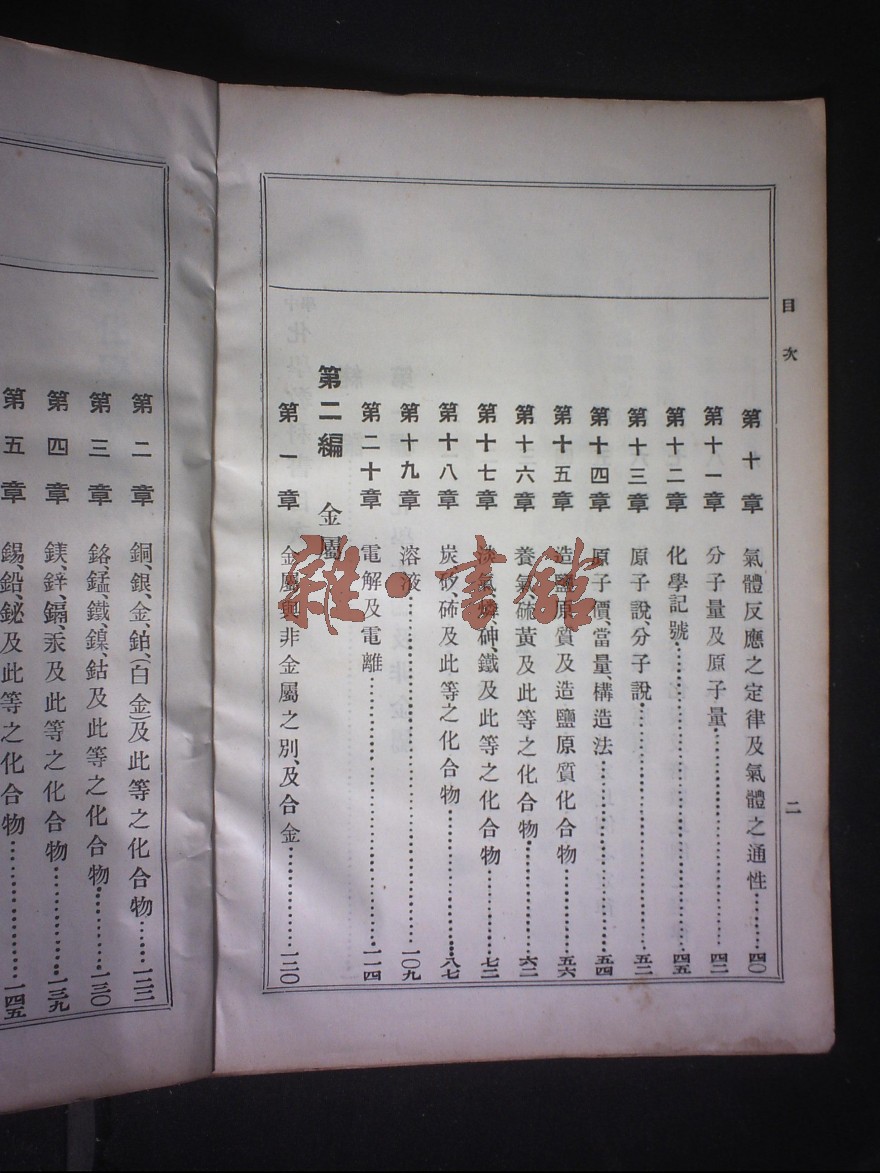 目次
二
第十章 氣體反應之定律及氣體之通性………四〇
第十一章 分子量及原子量………四二
第十二章 化學記號………四五
第十三章 原子說、分子說………五二
第十四章 原子價、當量、構造法………五四
第十五章 造鹽原質及造鹽原質化合物………五六
第十六章 養氣、硫黃及此等之化合物………六二
第十七章 淡氣、燐、砷、鐵及此等之化合物………七二
第十八章 炭、矽、硼及此等之化合物………八七
第十九章 溶液………一〇九
第二十章 電解及電離………一一四
第二編 金屬
第一章 金屬與非金屬之別、及合金………一二〇
第二章 銅、銀、金、鉑、(白金)及此等之化合物………一二二
第三章 鉻、錳、鐵、鎳、鈷及此等之化合物………一三〇
第四章 鎂、鋅、鎘、汞及此等之化合物………一三九
第五章 錫、鉛、鉍及此等之化合物………一四五
雜·書館